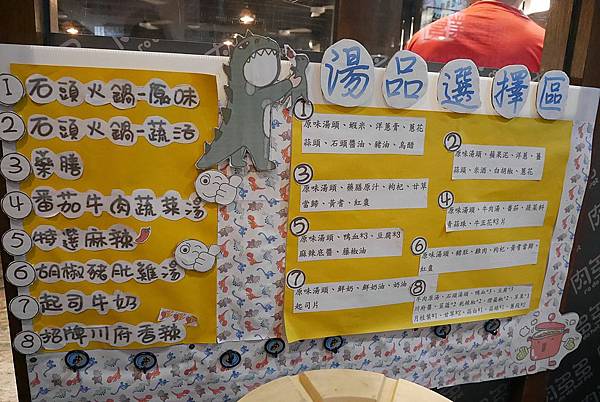 湯品選擇區
1 石頭火鍋-原味
2 石頭火鍋-蔬活
3 藥膳
4 番茄牛肉蔬菜湯
5 特選麻辣
6 胡椒豬肚雞湯
7 起司牛奶
8 招牌川府香辣
1
原味湯頭、蝦米、洋蔥青、蔥花
蒜頭、石頭醬油、豬油、烏醋
2
原味湯頭、蘋果泥、洋蔥、薑
蒜頭、米酒、白胡椒、蔥花
3
原味湯頭、藥膳原汁、枸杞、甘草
當歸、黃耆、紅棗
4
原味湯頭、牛肉湯、番茄、蔬菜料
青蒜珠、牛五花*3片
5
原味湯頭、鴨血*3、豆腐*3
麻辣底醬、藤椒油
6
原味湯頭、豬肚、雞肉、枸杞、黃耆當歸、
紅棗
7
原味湯頭、鮮奶、鮮奶油、奶油
起司片
8
牛肉原湯、石頭湯頭、鴨血*3、豆皮*3